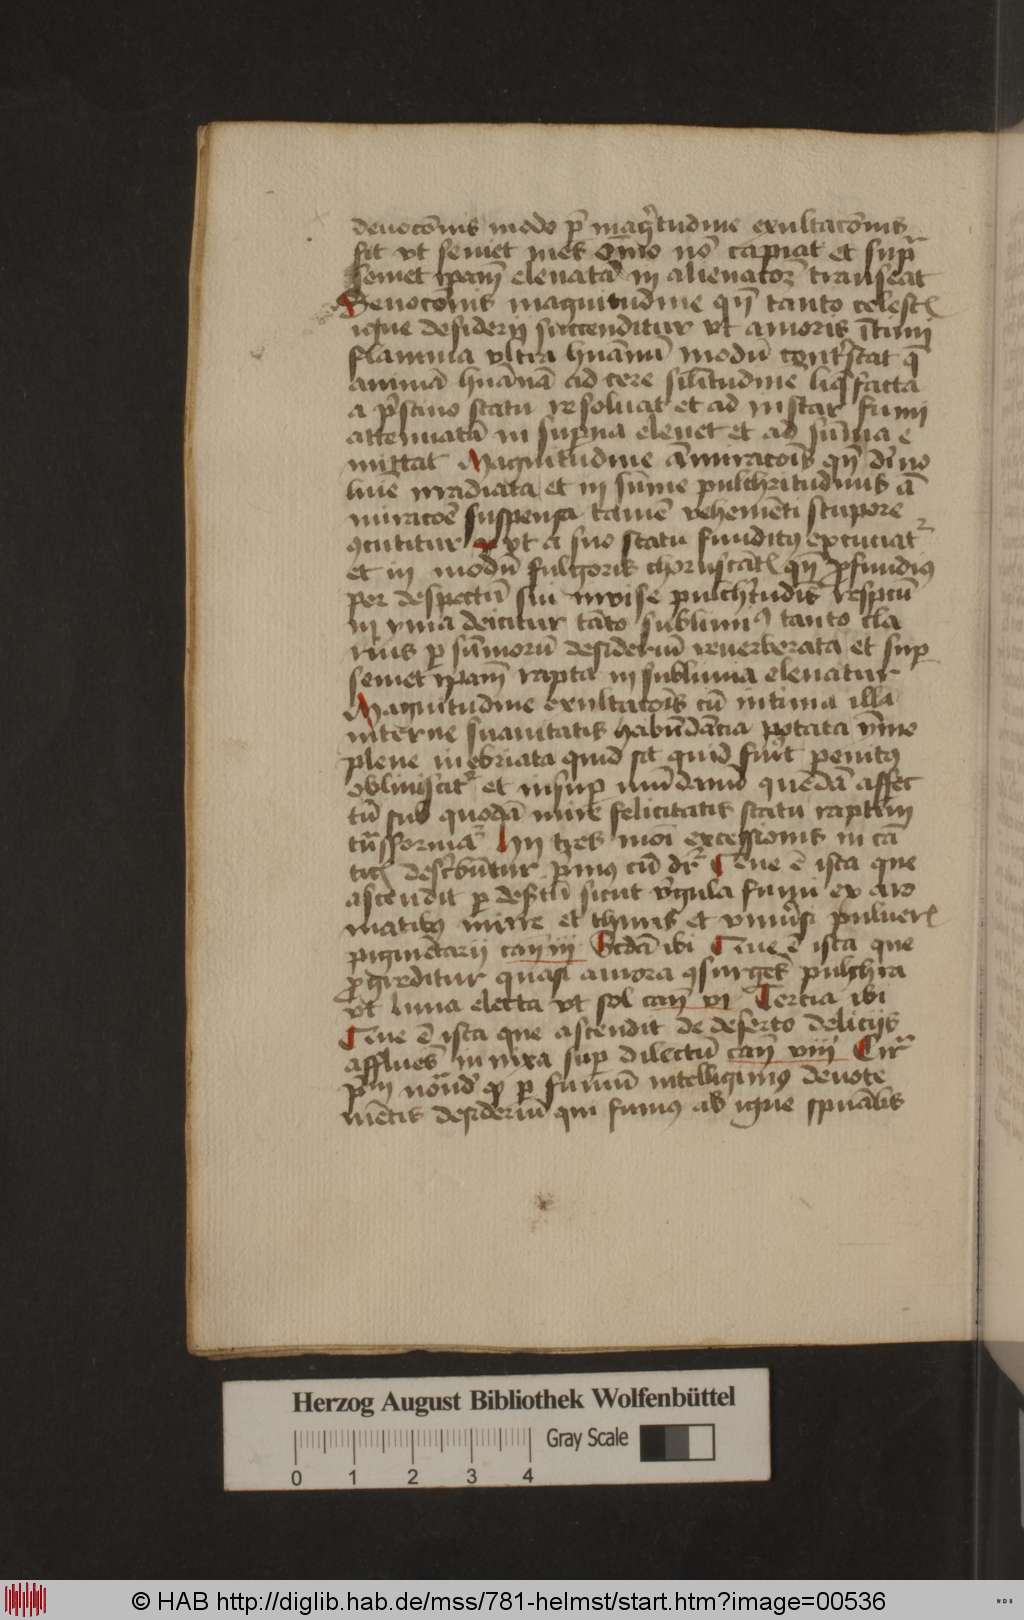 deuoc̄onis modo p̄ mag̉tudine exultac̄onis
fit vt semet mēs om̄no nō capiat et sup̄
semet ip̄am eleuata in alienac̄oꝫ transeat
Deuoc̄onis magnitudine qn̄ tanto celest
igne desiderij succenditur vt amoris ītimi
flamma vltra hūanū modū
animā hūanā ad cere silitudine liq̄facta
a p̉stino statu resoluat et ad instar fumi
attenuatā in sup̄na eleuet et ad sūma e
mittat Magnitudine āmirac̄ois qn̄ diuo
lūie irradiata et in sūme pulchritudinis ā
mirac̄oē suspensa tamē vehemēti stupore
ꝯcutitur vt a suo statu funditꝰ excuciat
et in modū fulgoris choruscāt qn̄ ꝓfundiꝰ
per despectū sui inuise pulch̉tudīs respctū
in yma deicitur tāto sublimiꝰ tanto cla
rius ꝑ sūmorū desideriū reuerberata et sup̄
semet ip̄am rapta in sublimia eleuatur
Magnitudine exultac̄ois cū intima illa
interne suauitatis habūdācia potata ymo
plene inebriata quid sit quid fủit penitꝰ
obliuiscit̉ et insup̄ mūdanū quēdā affec
tū sub quodā mire felicitatis statu raptim
trāsformat̉ Hii tres moi excessionis in cā
ticꝭ desc̉būtur p̉mus cū dr̄ Que ē ista que
ascendit ꝑ deṡtū sicut v̉gula fumi ex aro
matibꝰ mirre et thuris et vniủsi puluerꝭ
pigmētarij can̄ iij Scdā ibi Que ē ista que
ꝓgreditur quasi aurora ꝯsurgēs pulchra
vt luna electa vt sol can̄ vi Tercia ibi
Que ē ista que ascendit de deserto delicijs
affluēs innixa sup̄ dilectū can̄ viij Circ̉
p̉m notād ꝙ ꝑ fumū intelligimꝰ deuote
mētis desideriū qui fumꝰ ab igne spūalis
Herzog August Bibliothek Wolfenbüttel
Gray Scale
0 1 2 3 4
© HAB http://diglib.hab.de/mss/781-helmst/start.htm?image=00536